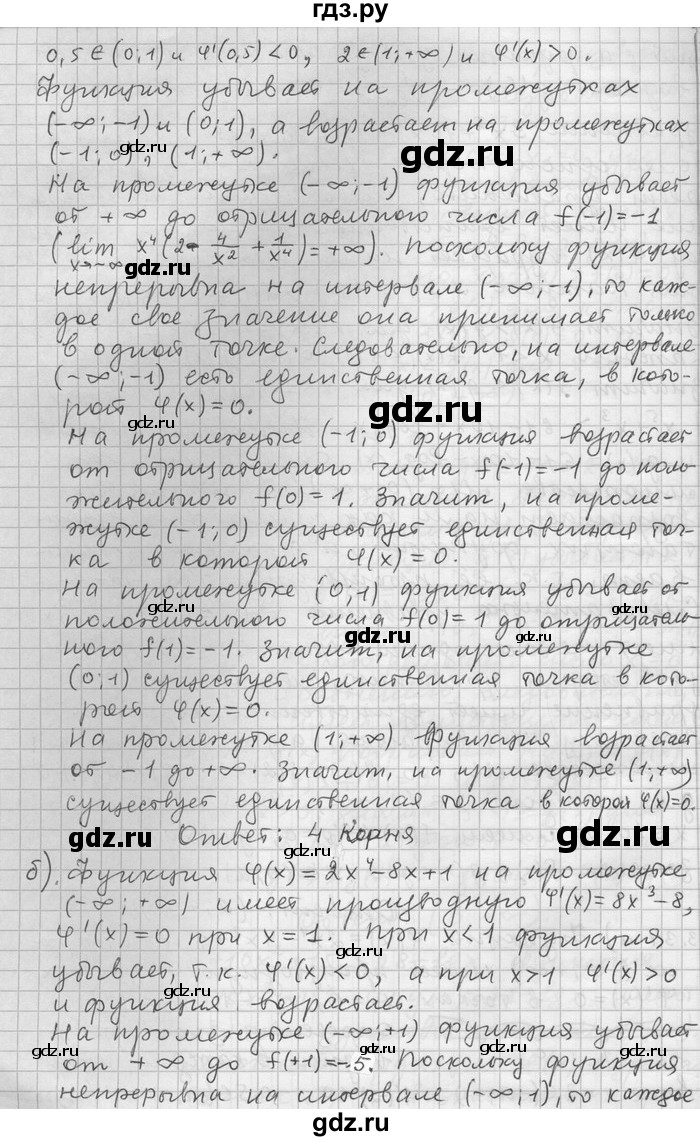 гдз.ру
0,5 ∈ (0;1) и φ'(0,5) < 0, 2 ∈ (1;+∞) и φ'(x) > 0.
Функция убывает на промежутках
(-∞;-1) и (0;1), а возрастает на промежутках
(-1;0), (1;+∞).
На промежутке (-∞;-1) функция убывает
от +∞ до отрицательного числа f(-1)=-1
(lim x→-∞ x⁴(2- 4/x² + 1/x⁴)=+∞). Поскольку функция
непрерывна на интервале (-∞;-1), то каж-
дое свое значение она принимает только
в одной точке. Следовательно, на интервале
(-∞;-1) есть единственная точка, в кото-
рой φ(x)=0.
На промежутке (-1;0) функция возрастает
от отрицательного числа f(-1)=-1 до поло-
жительного f(0)=1. Значит, на проме-
жутке (-1;0) существует единственная точ-
ка в которой φ(x)=0.
На промежутке (0;1) функция убывает от
положительного числа f(0)=1 до отрицатель-
ного f(1)=-1. Значит, на промежутке
(0;1) существует единственная точка в кото-
рой φ(x)=0.
На промежутке (1;+∞) функция возрастает
от -1 до +∞. Значит, на промежутке (1;+∞)
существует единственная точка в которой φ(x)=0.
Ответ: 4 корня
б). Функция φ(x)=2x⁴-8x+1 на промежутке
(-∞;+∞) имеет производную φ'(x)=8x³-8,
φ'(x)=0 при x=1. При x<1 функция
убывает, т.к. φ'(x)<0, а при x>1 φ'(x)>0
и функция возрастает.
На промежутке (-∞;+1) функция убывает
от +∞ до f(+1)=-5. Поскольку функция
непрерывна на интервале (-∞;1), то каждое
gdz.ru